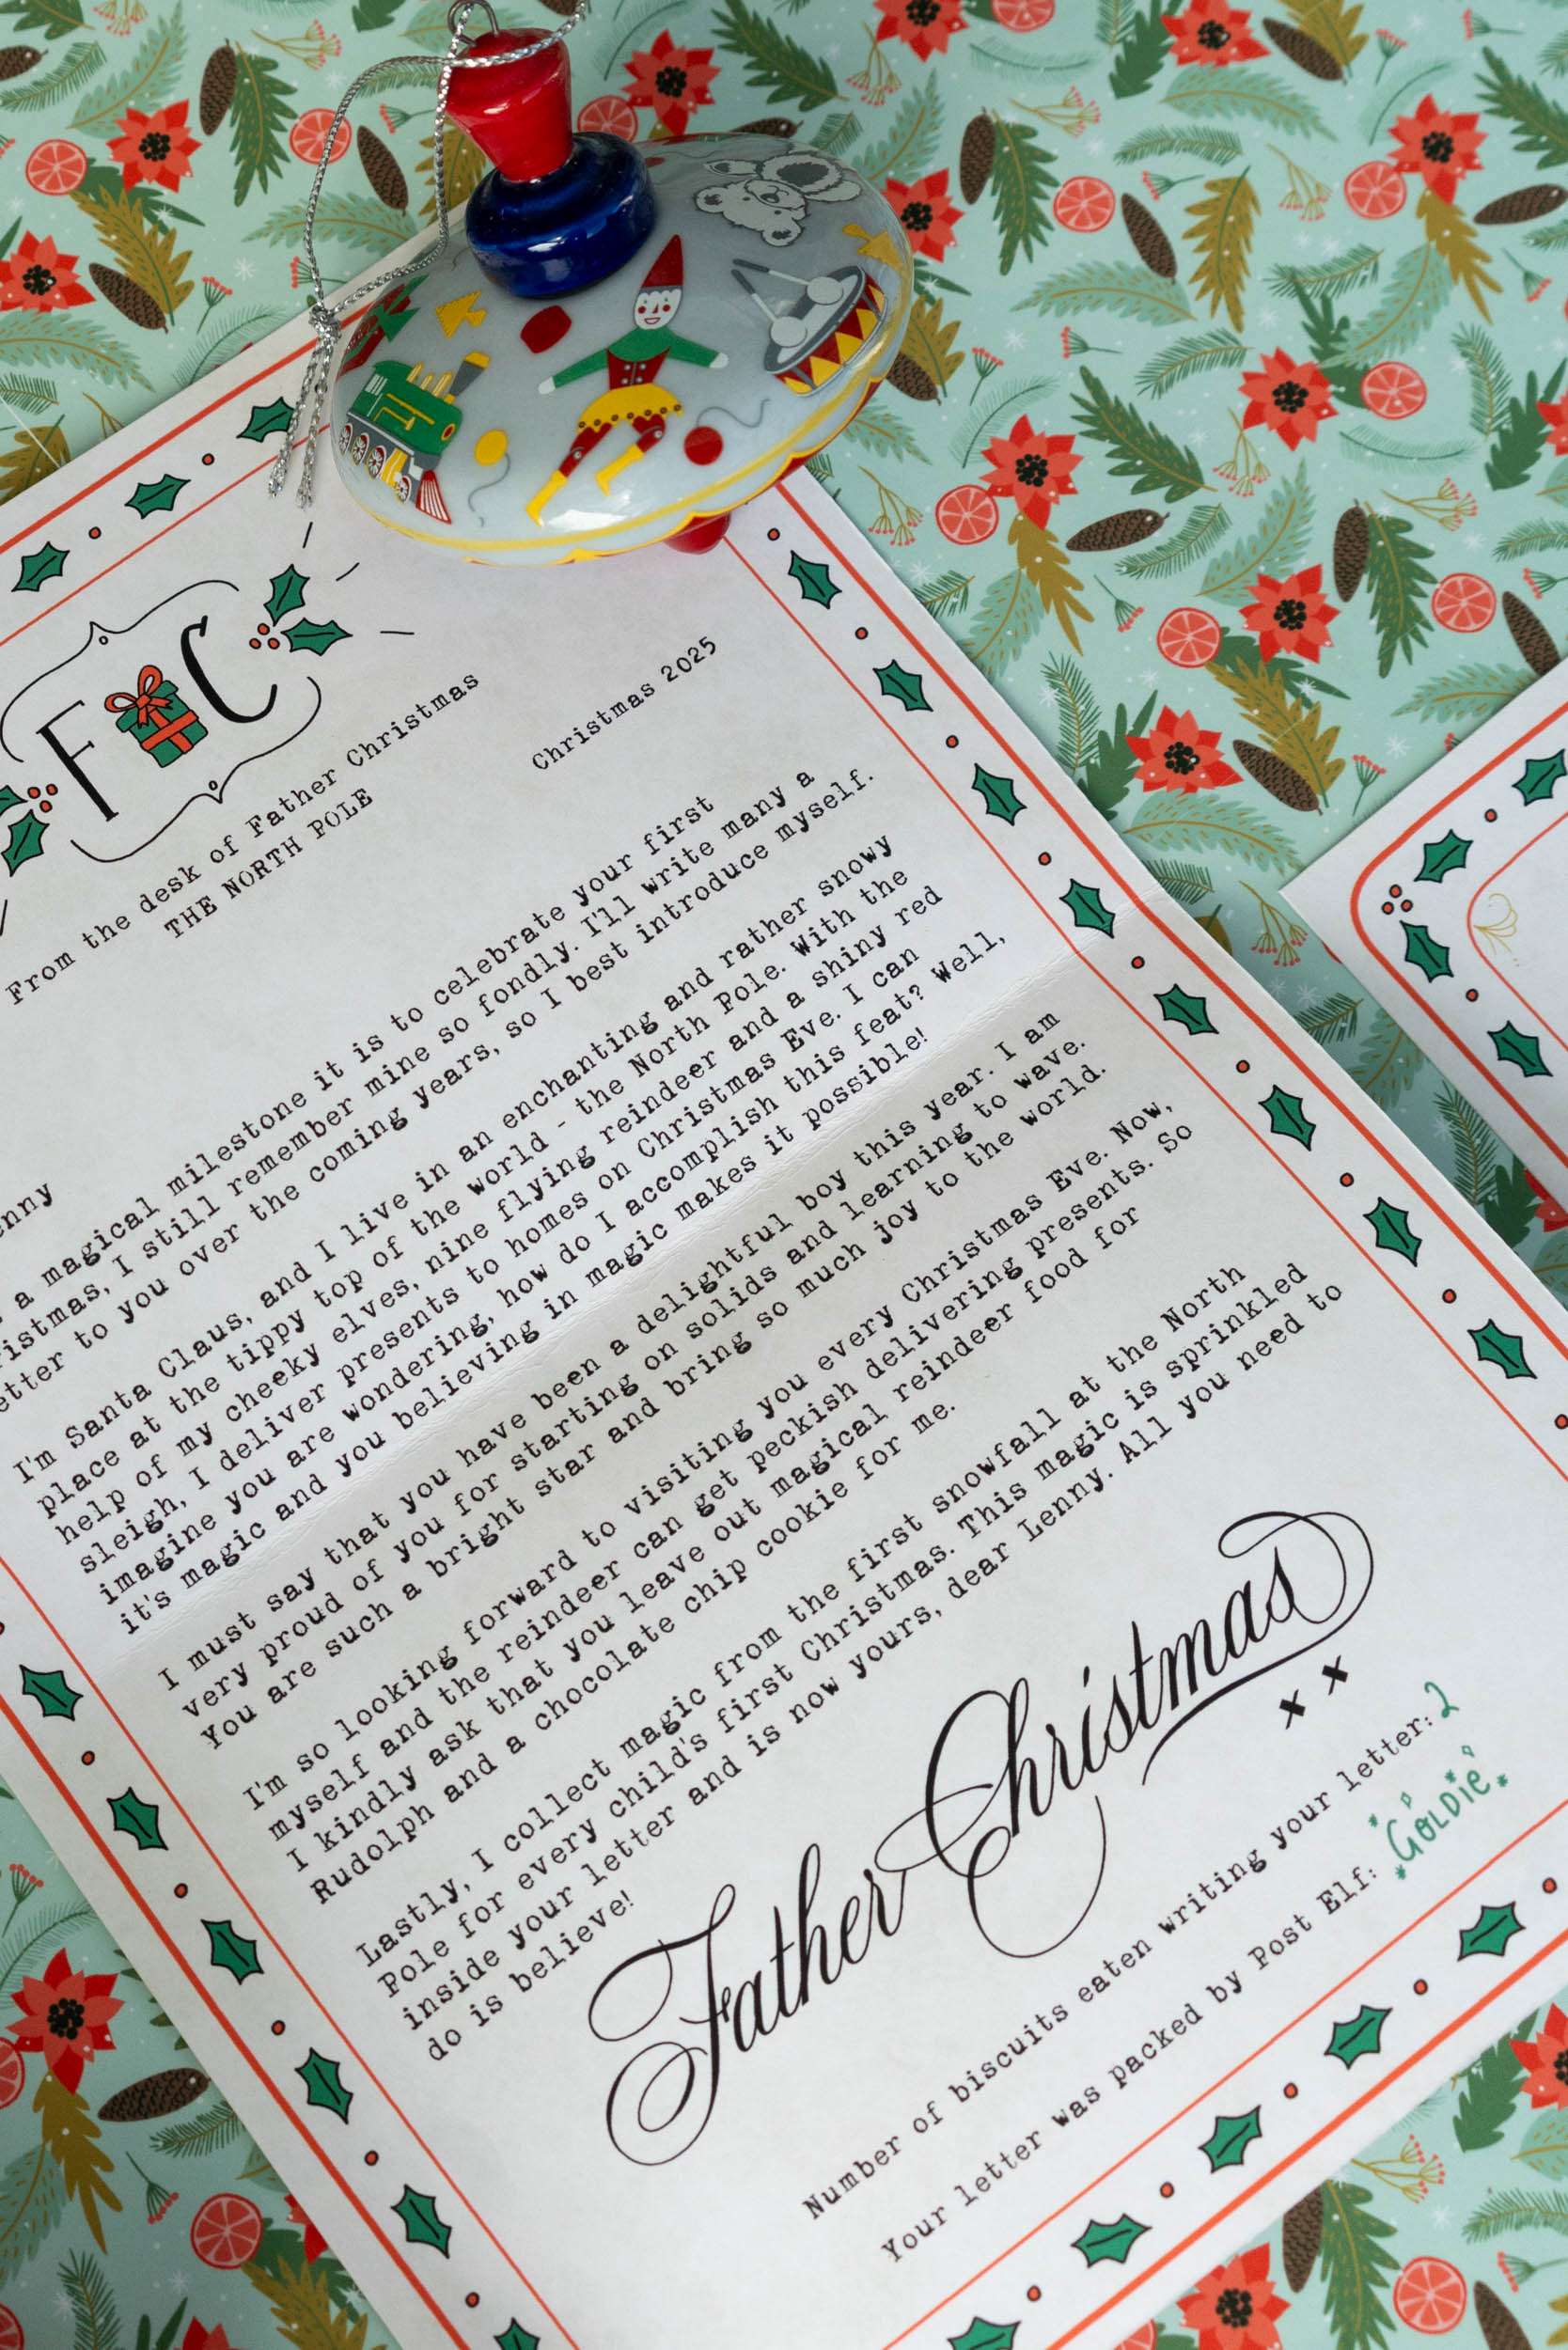 F C
From the desk of Father Christmas
THE NORTH POLE
Christmas 2025
enny
a magical milestone it is to celebrate your first
ristmas, I still remember mine so fondly. I'll write many a
etter to you over the coming years, so I best introduce myself.
I'm Santa Claus, and I live in an enchanting and rather snowy
place at the tippy top of the world - the North Pole. With the
help of my cheeky elves, nine flying reindeer and a shiny red
sleigh, I deliver presents to homes on Christmas Eve. I can
imagine you are wondering, how do I accomplish this feat? Well,
it's magic and you believing in magic makes it possible!
I must say that you have been a delightful boy this year. I am
very proud of you for starting on solids and learning to wave.
You are such a bright star and bring so much joy to the world.
I'm so looking forward to visiting you every Christmas Eve. Now,
myself and the reindeer can get peckish delivering presents. So
I kindly ask that you leave out magical reindeer food for
Rudolph and a chocolate chip cookie for me.
Lastly, I collect magic from the first snowfall at the North
Pole for every child's first Christmas. This magic is sprinkled
inside your letter and is now yours, dear Lenny. All you need to
do is believe!
Father Christmas
x x
Number of biscuits eaten writing your letter: 2
Your letter was packed by Post Elf: GOLDIE